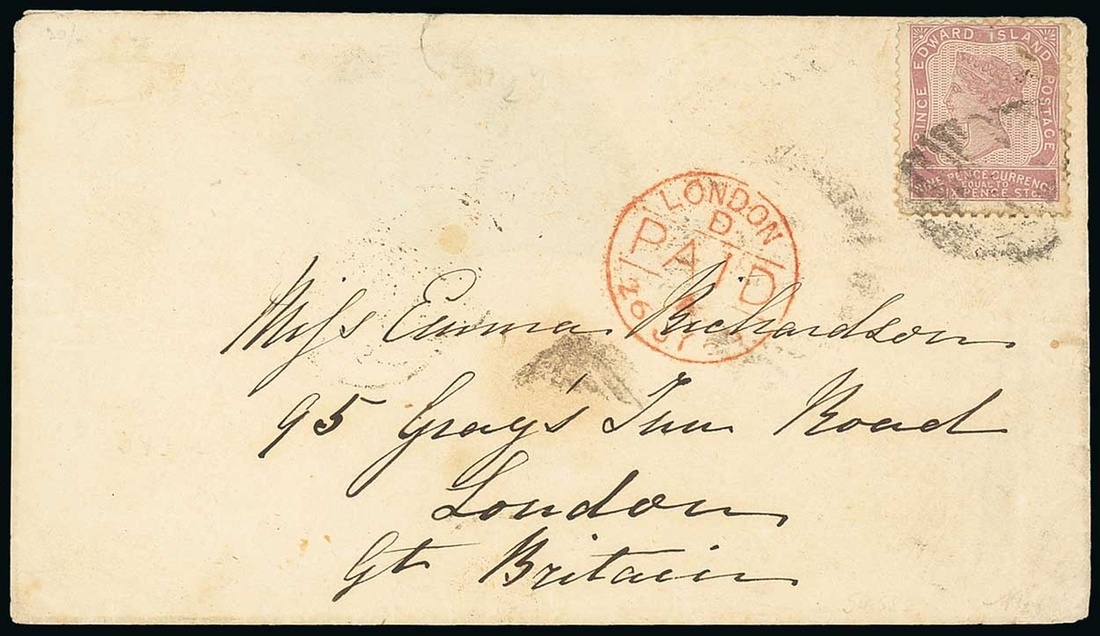 PRINCE EDWARD ISLAND POSTAGE
PENCE CURRENCY
EQUAL TO
PENCE STG
LONDON
B
PAID
26 JY
Miss Emma Richardson
95 Gray's Inn Road
London
Gt Britain